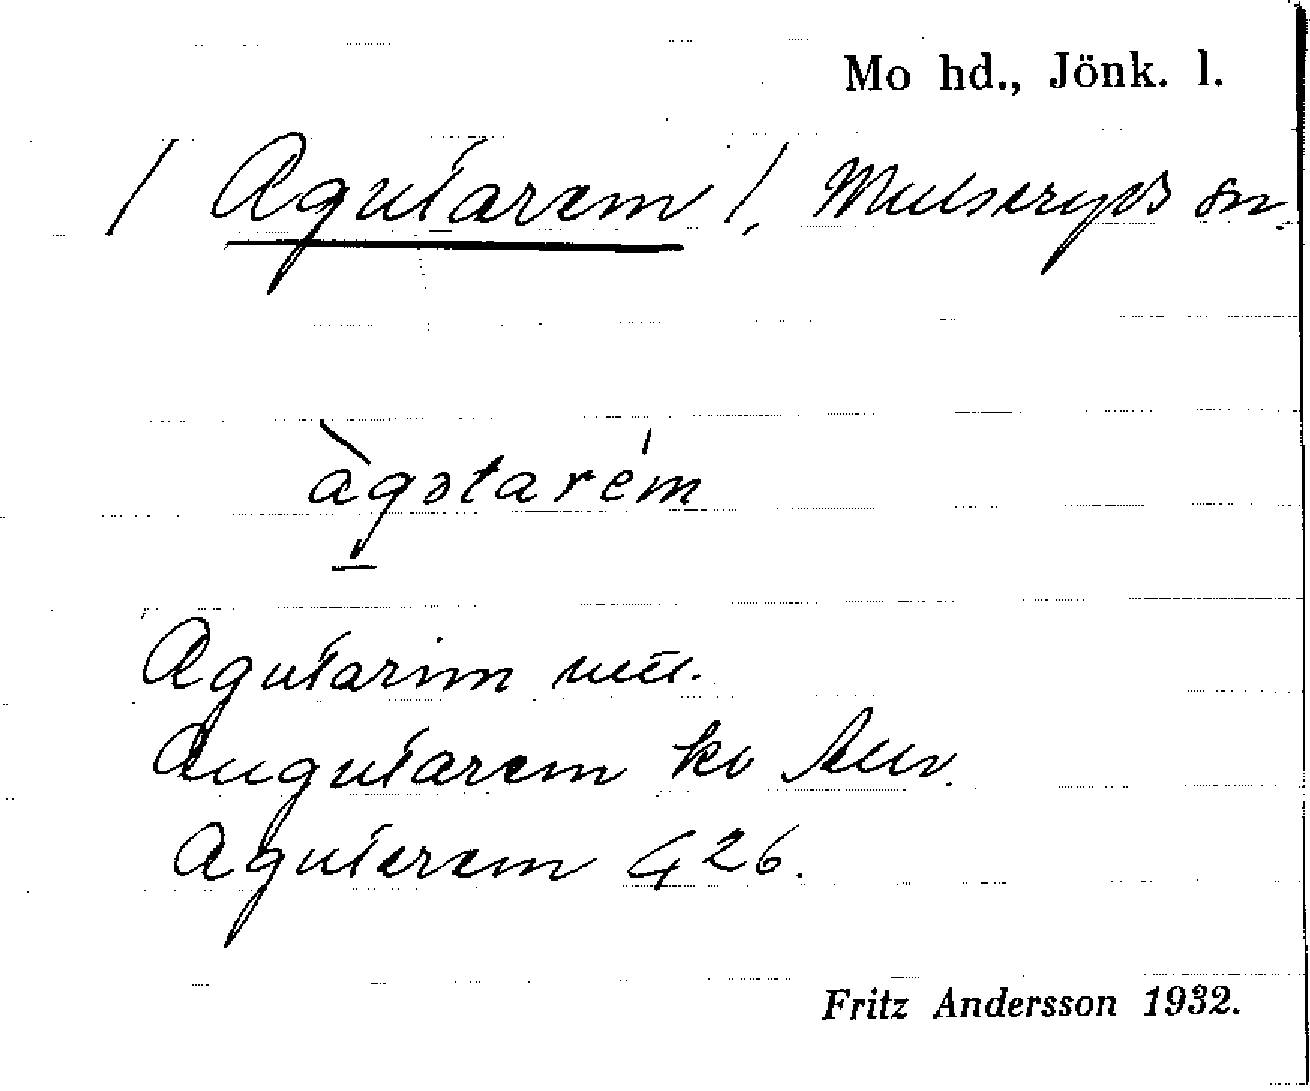 Mo hd., Jönk. l.
/ Agutarem /, Mulseryds sn.
àgətarém
Agutarim
Angutarem ko
Aguterem 426.
Fritz Andersson 1932.